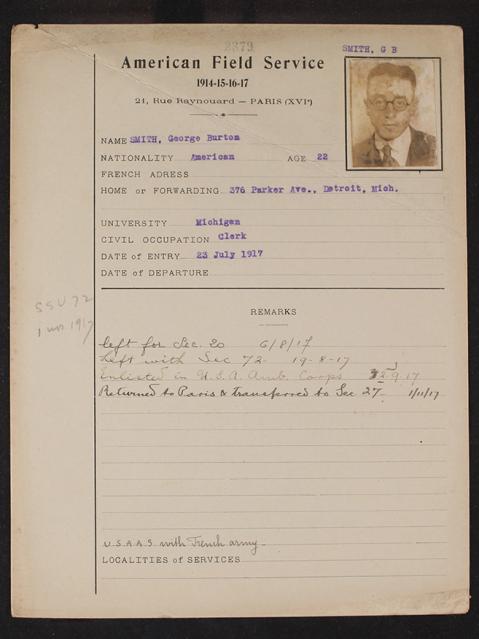 2379
SMITH, G B
American Field Service
1914-15-16-17
21, Rue Raynouard — PARIS (XVIe)
NAME SMITH, George Burton
NATIONALITY American AGE 22
FRENCH ADRESS
HOME or FORWARDING 376 Parker Ave., Detroit, Mich.
UNIVERSITY Michigan
CIVIL OCCUPATION Clerk
DATE of ENTRY 23 July 1917
DATE of DEPARTURE
SSU 72
1 nov. 1917
REMARKS
Left for Sec. 20 6/8/17
Left with Sec 72. 19-8-17
Enlisted in U.S.A. Amb. Corps 9.17
Returned to Paris & transferred to Sec 27- 1/11/17
U.S.A.A.S. with French army-
LOCALITIES of SERVICES